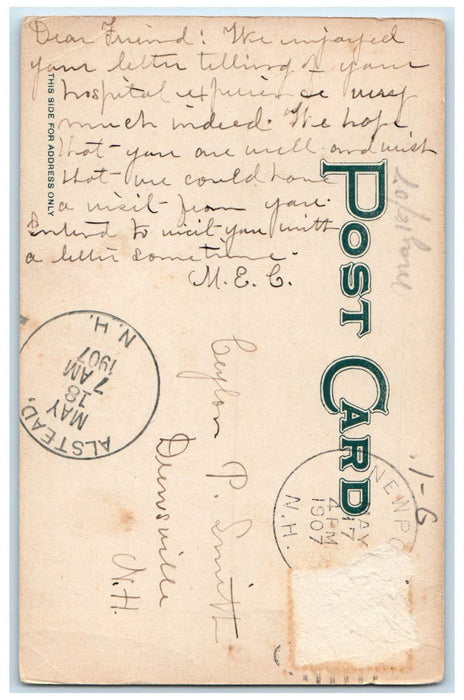 Dear Friend: We enjoyed
your letter telling of your
hospital experience very
much indeed. We hope
that you are well and wish
that we could have
a visit from you.
Intend to visit you with
a letter sometime.
M. E. C.
THIS SIDE FOR ADDRESS ONLY
POST CARD
ALSTEAD,
MAY
18
7 AM
1907
N.H.
NEWPO
MAY
17
4 PM
1907
N.H.
Ceylon P. Smith
Drewsville
N.H.
1-6